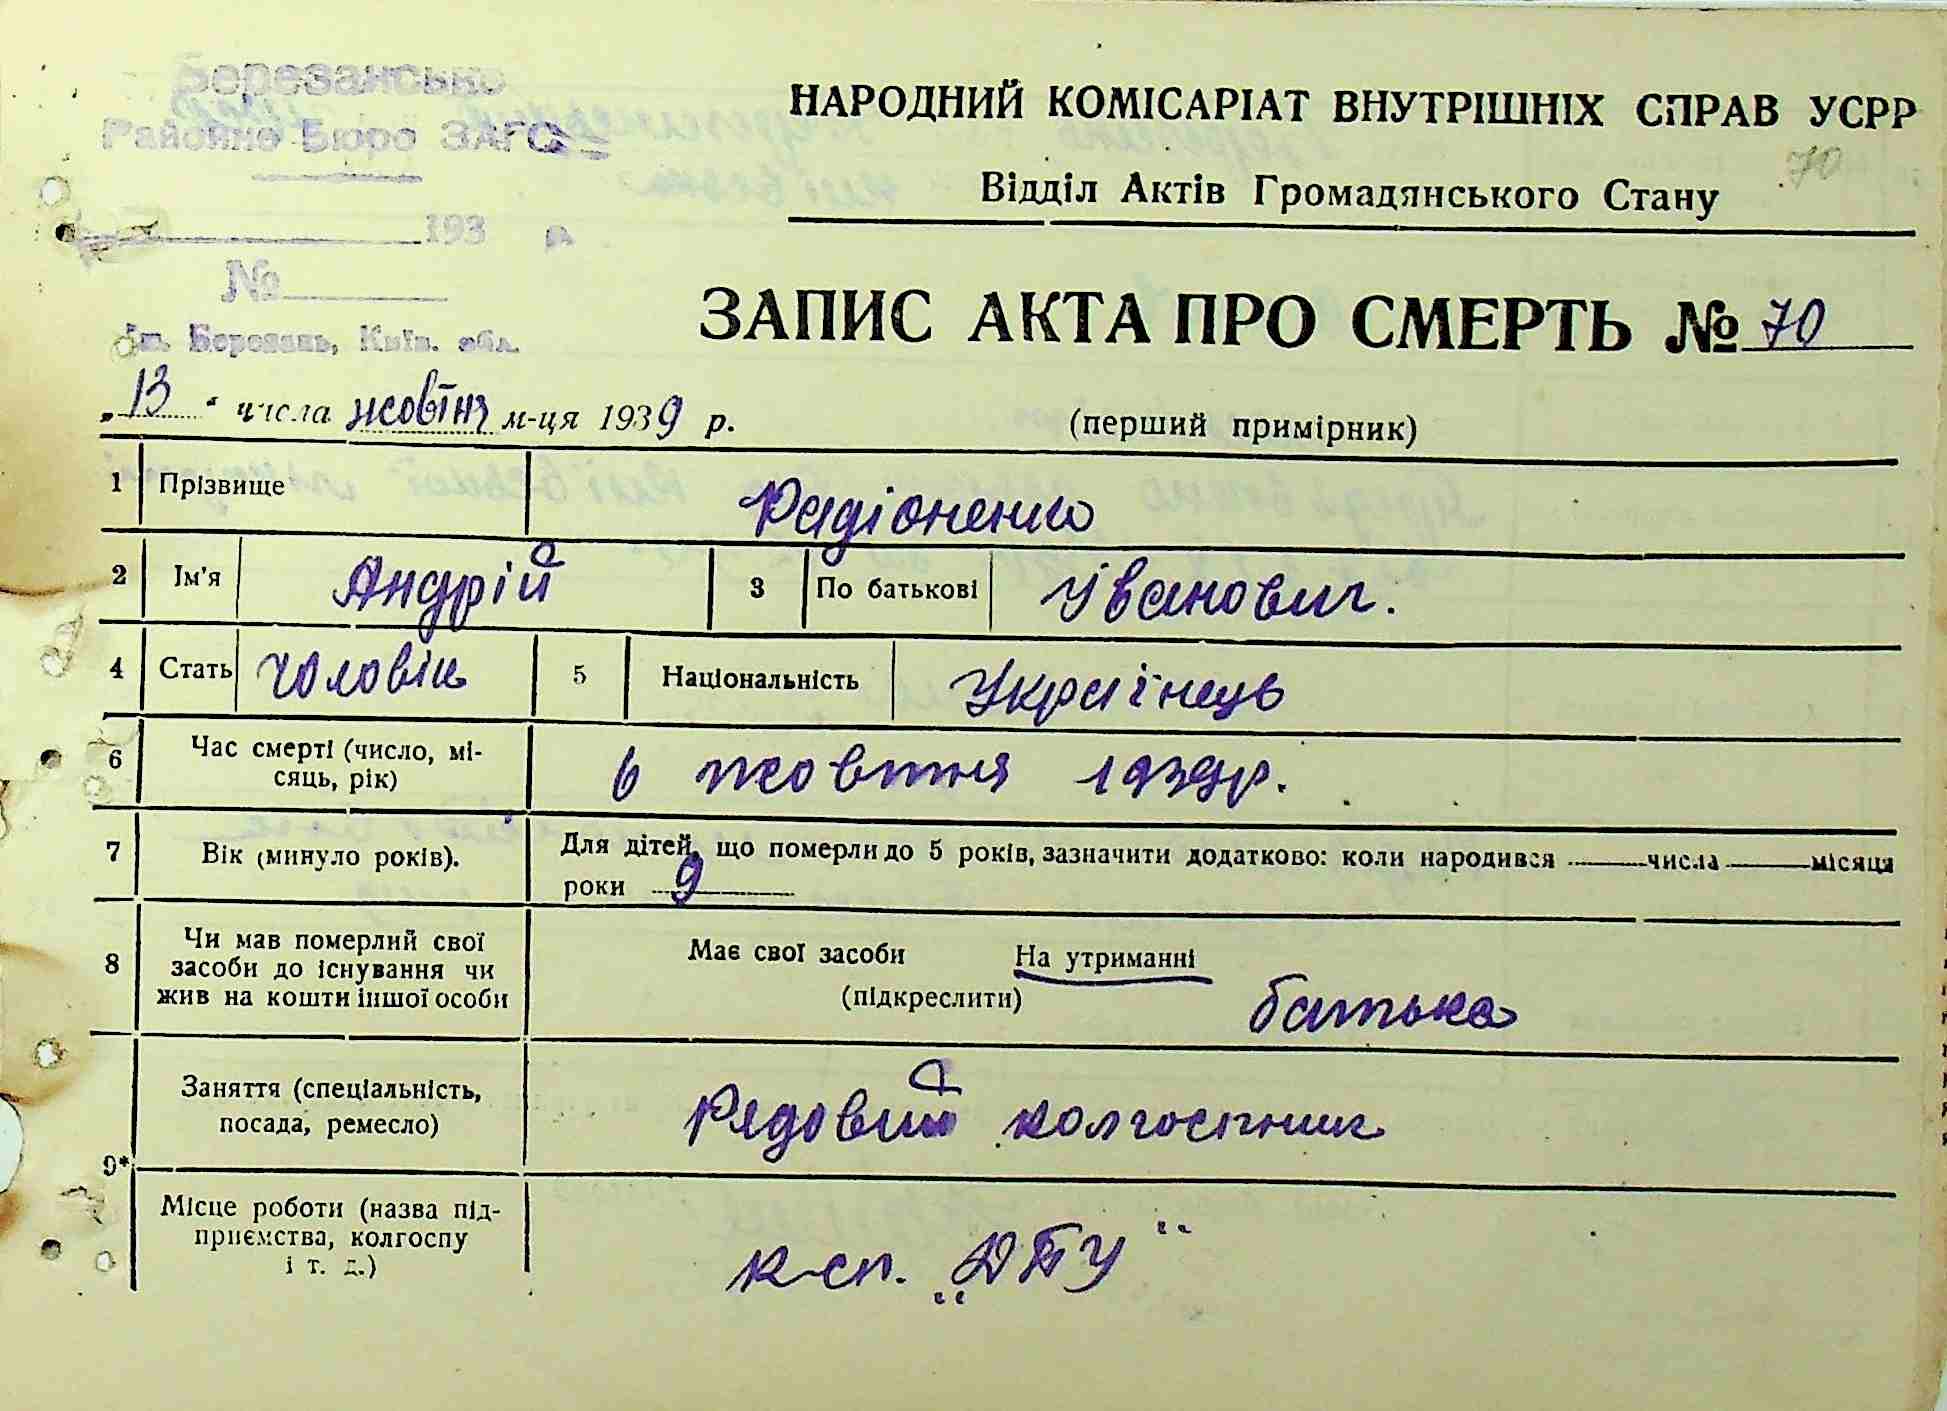 Березансько
Районне Бюро ЗАГС
НАРОДНИЙ КОМІСАРІАТ ВНУТРІШНІХ СПРАВ УСРР
70
Відділ Актів Громадянського Стану
193 р.
№
ст. Березань, Київ. обл.
ЗАПИС АКТА ПРО СМЕРТЬ № 70
„13“ числа жовтня м-ця 1939 р.
(перший примірник)
1 Прізвище Радіоненко
2 Ім'я Андрій 3 По батькові Іванович.
4 Стать чоловік 5 Національність Українець
6 Час смерті (число, мі-
сяць, рік) 6 жовтня 1939р.
7 Вік (минуло років). Для дітей, що померли до 5 років, зазначити додатково: коли народився числа місяця
роки 9
8 Чи мав померлий свої
засоби до існування чи
жив на кошти іншої особи
Має свої засоби На утриманні
(підкреслити) батька
9* Заняття (спеціальність,
посада, ремесло) Рядовий колгоспник
Місце роботи (назва під-
приємства, колгоспу
і т. д.) к-сп. „ДПУ“